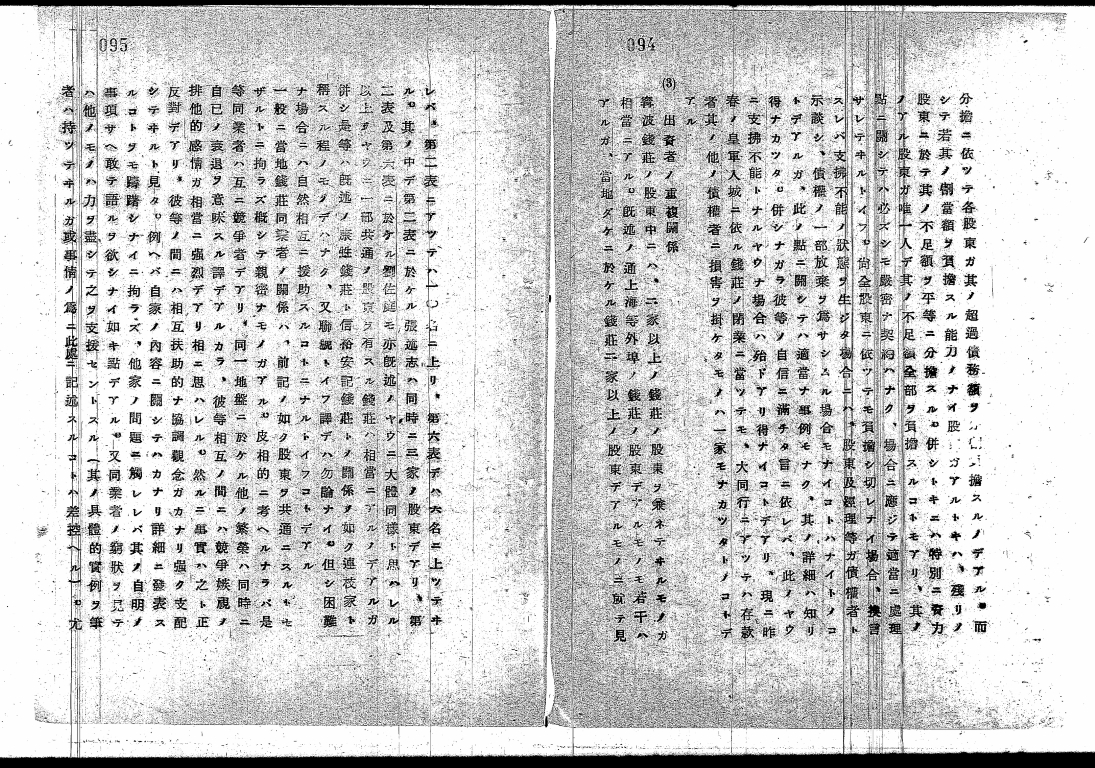 094
分擔ニ依ツテ各股東ガ其ノ超過債務額ヲ擔スルノデアル。而
シテ若其ノ割當額ヲ負擔スル能力ノナイ股ガアルトキハ、殘リノ
股東ニ於テ其ノ不足額ヲ平等ニ分擔スル。併シトキニハ特別ニ資力
ノアル股東ガ唯一人デ其ノ不足額全部ヲ負擔スルコトモアリ、其ノ
點ニ關シテハ必ズシモ嚴密ナ契約ハナク、場合ニ應ジテ適當ニ處理
サレテヰルトイフ。尙全股東ニ依ツテモ負擔シ切レナイ場合、換言
スレバ支拂不能ノ狀態ヲ生ジタ場合ニハ、股東及經理等ガ債權者ト
示談シ、債權ノ一部放棄ヲ爲サシムル場合モナイコトハナイトノコ
トデアルガ、此ノ點ニ關シテハ適當ナ事例モナク、其ノ詳細ハ知リ
得ナカツタ。併シナガラ彼等ノ自信ニ滿チタ言ニ依レバ、此ノヤウ
ニ支拂不能トナルヤウナ場合ハ殆ドアリ得ナイコトデアリ、現ニ昨
春ノ皇軍入城ニ依ル錢莊ノ閉業ニ當ツテモ、大同行ニアツテハ存款
者其ノ他ノ債權者ニ損害ヲ掛ケタモノハ一家モナカツタトノコトデ
アル
(3) 出資者ノ重複關係
寧波錢莊ノ股東中ニハ、二家以上ノ錢莊ノ股東ヲ兼ネテヰルモノガ
相當ニアル。既述ノ通上海等外埠ノ錢莊ノ股東デアルモノモ若干ハ
アルガ、當地ダケニ於ケル錢莊二家以上ノ股東デアルモノニ就テ見
095
レバ、第二表ニアツテハ一〇名ニ上リ、第六表デハ六名ニ上ツテヰ
ル。其ノ中デ第二表ニ於ケル張延志ハ同時ニ三家ノ股東デアリ、第
二表及第六表ニ於ケル劉佐庭モ亦既述ノヤウニ大體同樣ト思ハレル
以上ノヤウニ一部共通ノ股東ヲ有スル錢莊ハ相當ニアルノデアルガ
併シ是等ハ既述ノ錢莊ト信裕安記錢莊トノ關係ノ如ク連枝家ト
稱スル程ノモノデハナク、又聯號トイフ譯デハ勿論ナイ。但シ困難
ナ場合ニハ自然相互ニ援助スルコトニナルトイフコトデアル
一般ニ當地錢莊同業者ノ關係ハ、前記ノ如ク股東ヲ共通ニスルトセ
ザルトニ拘ラズ概シテ親密ナモノガアル。皮相的ニ考ヘルナラバ是
等同業者ハ互ニ競爭者デアリ、同一地盤ニ於ケル他ノ繁榮ハ同時ニ
自己ノ衰退ヲ意味スル譯デアルカラ、彼等相互ノ間ニハ競爭嫉視ノ
排他的感情ガ相當ニ强烈デアリ相ニ思ハレル。然ルニ事實ハ之ト正
反對デアリ、彼等ノ間ニハ相互扶助的ナ協調觀念ガカナリ强ク支配
シテヰルト見タ。例ヘバ自家ノ內容ニ關シテハカナリ詳細ニ發表ス
ルコトヲモ躊躇シナイニ拘ラズ、他家ノ問題ニ觸レレバ其ノ自明ノ
事項サヘ敢テ語ルヲ欲シナイ如キ點デアル。又同業者ノ窮狀ヲ見テ
ハ他ノモノハ力ヲ盡シテ之ヲ支援セントスル（其ノ具體的實例ヲ筆
者ハ持ツテヰルガ或事情ノ爲ニ此處ニ記述スルコトハ差控ヘル）。尤